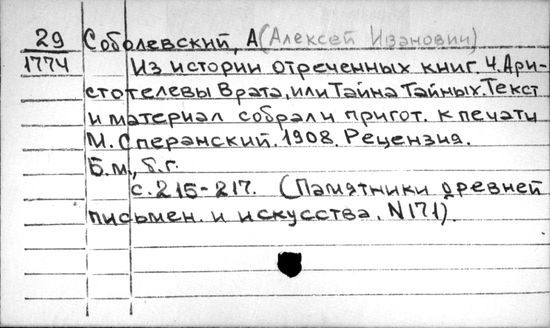 29 Соболевский, А(Алексей Иванович)
1774 Из истории отреченных книг. Ч. Ари-
стотелевы Врата, или Тайна Тайных. Текст
и материал собрали пригот. к печати
М. Сперанский. 1908. Рецензия.
Б.м., б.г.
с. 215-217. (Памятники древней
письмен. и искусства. N171).